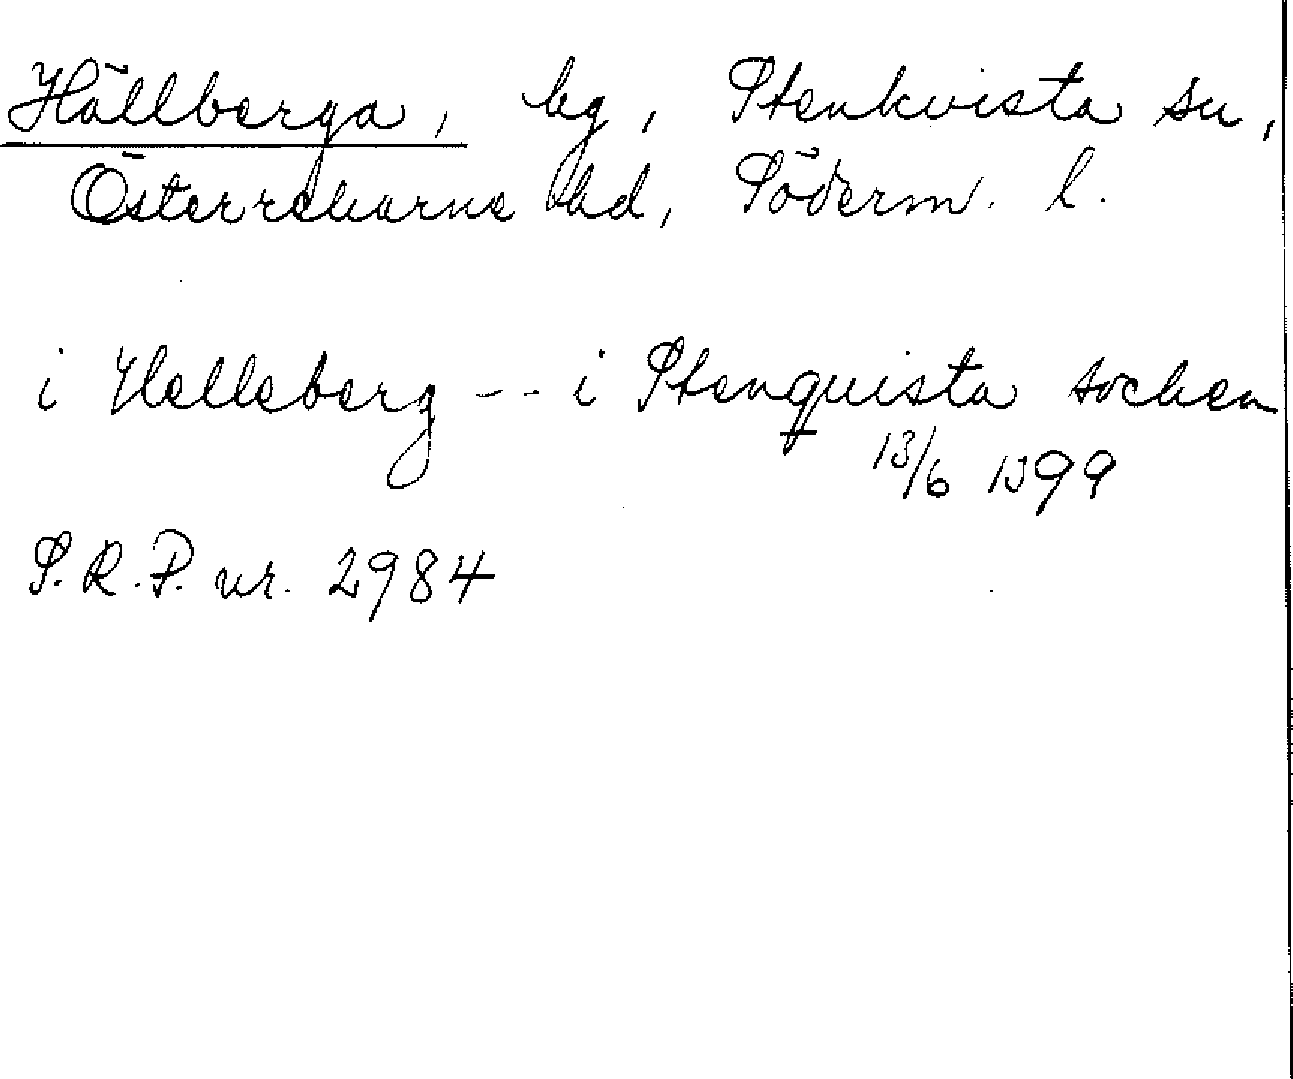 Hällberga, by, Stenkvista sn,
Österrekarne hd, Söderm. l.
i Helleberg -- i Stenquista sochen
13/6 1399
S.R.P. nr. 2984